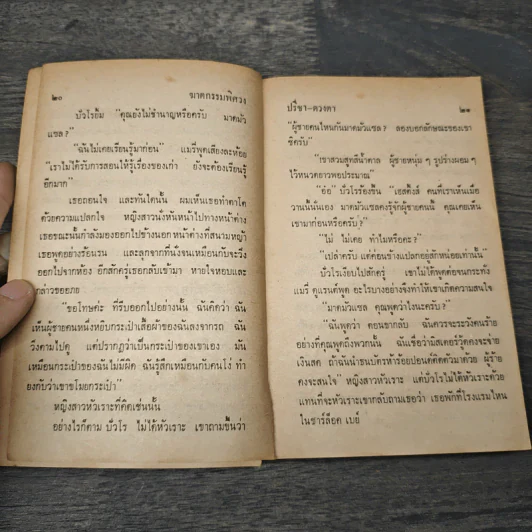 ๒๐ ฆาตกรรมพิศวง
ปัวโรยิ้ม "คุณยังไม่ชำนาญหรือครับ มาดมัว
แซล?"
"ฉันไม่เคยเรียนรู้มาก่อน" แมรี่พูดเสียงละห้อย
"เราไม่ได้รับการสอนให้รู้เรื่องของเก่า ยังจะต้องเรียนรู้
อีกมาก"
เธอถอนใจ และทันใดนั้น ผมเห็นเธอทำตาโต
ด้วยความแปลกใจ หญิงสาวนั่งหันหน้าไปทางหน้าต่าง
เธอขณะนั้นกำลังมองออกไปข้างนอก หน้าต่างที่สนามหญ้า
เธอพูดอย่างร้อนรน และลุกจากที่นั่งจนเหมือนกับจะวิ่ง
ออกไปจากห้อง อีกสักครู่เธอกลับเข้ามา หายใจหอบและ
กล่าวขออภัย
"ขอโทษค่ะ ที่รีบออกไปอย่างนั้น ฉันคิดว่า ฉัน
เห็นผู้ชายคนหนึ่งหยิบกระเป๋าเสื้อผ้าของฉันลงจากรถ ฉัน
วิ่งตามไปดู แต่ปรากฏว่าเป็นกระเป๋าของเขาเอง มัน
เหมือนกระเป๋าของฉันไม่มีผิด ฉันรู้สึกเหมือนกับคนโง่ ทำ
ยังกับว่าเขาขโมยกระเป๋า"
หญิงสาวหัวเราะที่คิดเช่นนั้น
อย่างไรก็ตาม ปัวโร ไม่ได้หัวเราะ เขาถามขึ้นว่า
ปรีชา-ดวงตา ๒๑
"ผู้ชายคนไหนกันมาดมัวแซล? ลองบอกลักษณะของเขา
ซิครับ"
"เขาสวมสูทสีน้ำตาล ผู้ชายหนุ่ม ๆ รูปร่างผอม ๆ
ไว้หนวดยาวพอประมาณ"
"อ้อ" ปัวโรร้องขึ้น "เฮสติ้งส์ คนที่เราเห็นเมื่อ
วานนี้นั่นเอง มาดมัวแซลคงรู้จักผู้ชายคนนี้ คุณเคยเห็น
เขามาก่อนหรือครับ?"
"ไม่ ไม่เคย ทำไมหรือคะ?"
"เปล่าครับ แต่ค่อนข้างแปลกอยู่สักหน่อยเท่านั้น"
ปัวโรเงียบไปสักครู่ เขาไม่ได้พูดต่อจนกระทั่ง
แมรี่ ดูแรนต์พูด อะไรบางอย่างจึงทำให้เขาเกิดความสนใจ
"มาดมัวแซล คุณพูดว่าไงนะครับ?"
"ฉันพูดว่า ตอนขากลับ ฉันควรจะระวังคนร้าย
อย่างที่คุณพูดถึงพวกนั้น ฉันเชื่อว่ามิสเตอร์วู้ดคงจะจ่าย
เงินสด ถ้าฉันนำธนบัตรห้าร้อยปอนด์ติดตัวมาด้วย ผู้ร้าย
คงจะสนใจ" หญิงสาวหัวเราะ แต่ปัวโรไม่ได้หัวเราะด้วย
แทนที่จะหัวเราะเขากลับถามเธอว่า เธอพักที่โรงแรมไหน
ในชาร์ล็อค เบย์